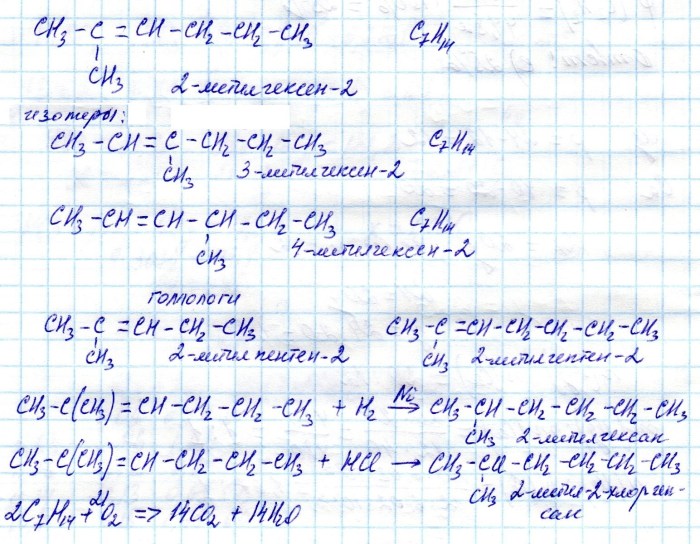 CH₃ - C = CH - CH₂ - CH₂ - CH₃ C₇H₁₄
CH₃ 2-метилгексен-2
изомеры:
CH₃ - CH = C - CH₂ - CH₂ - CH₃ C₇H₁₄
CH₃ 3-метилгексен-2
CH₃ - CH = CH - CH - CH₂ - CH₃ C₇H₁₄
CH₃ 4-метилгексен-2
гомологи
CH₃ - C = CH - CH₂ - CH₃ CH₃ - C = CH - CH₂ - CH₂ - CH₂ - CH₃
CH₃ 2-метилпентен-2 CH₃ 2-метилгептен-2
CH₃ - C(CH₃) = CH - CH₂ - CH₂ - CH₃ + H₂ Ni → CH₃ - CH - CH₂ - CH₂ - CH₂ - CH₃
CH₃ 2-метилгексан
CH₃ - C(CH₃) = CH - CH₂ - CH₂ - CH₃ + HCl → CH₃ - CCl - CH₂ - CH₂ - CH₂ - CH₃
CH₃ 2-метил-2-хлоргек-
сан
2C₇H₁₄ + 21O₂ => 14CO₂ + 14H₂O